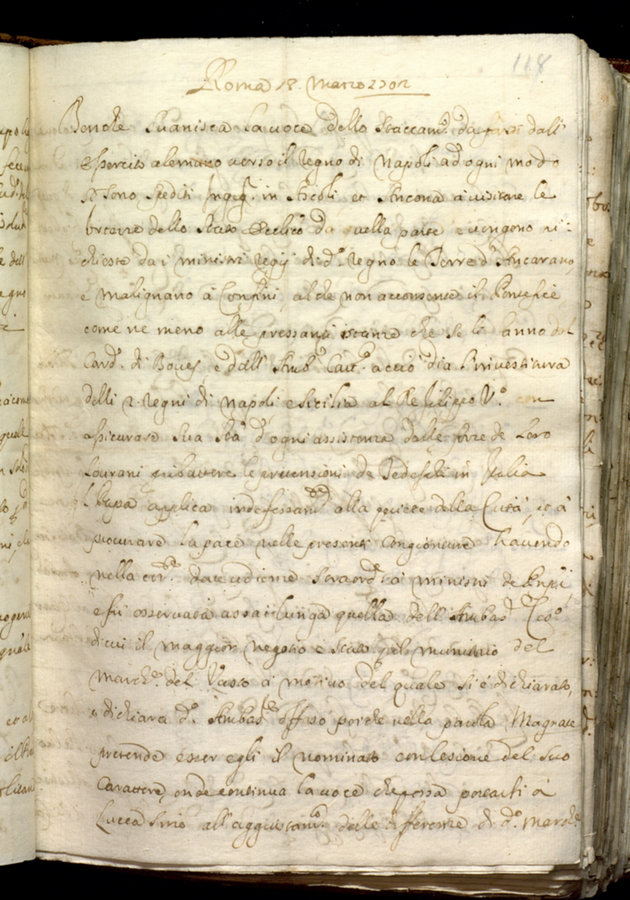 118
Roma 18 Marzo 1702
Benche suanisca la voce dello staccam.to da farsi dall'
esercito alemano verso il Regno di Napoli ad ogni modo
si sono spediti Ingeg.ri in Ascoli et Ancona à visitare le
dello Stato Eccl.ico da quella parte e vengono ri=
chieste da i ministri Regij di d.o Regno le Terre d'Ancarano,
e Malignano à Confini, al che non acconsente il Pontefice
come ne meno alle pressanti istanze che se li fanno dal
Card. di e dall' Amb.r acciò dia l'investitura
delli 2 Regni di Napoli e Sicilia al Re Filippo V.o con
assicurare Sua S.tà d'ogni assistenza dalle forze de loro
Sourani ribattere le pretensioni de Tedeschi in Italia
Il Papa applica indefessam.te alla quiete della Città, et à
procurare la pace nelle presenti congionture havendo
nella date udienze straord.e ai ministri de
e fu osservata assai lunga quella dell' Ambas.r Ces.o
di cui il maggior negotio è stato pal ministerio del
March.e del Vasto à motivo del quale si è dichiarato,
e dichiara d.o Ambas.re offeso poiche nella parola Magnate
pretende esser egli il nominato con lesione del suo
Carattere, onde continua la voce che possa portarsi à
Lucca sino all' aggiustam.to delle differenze di d.o March.e